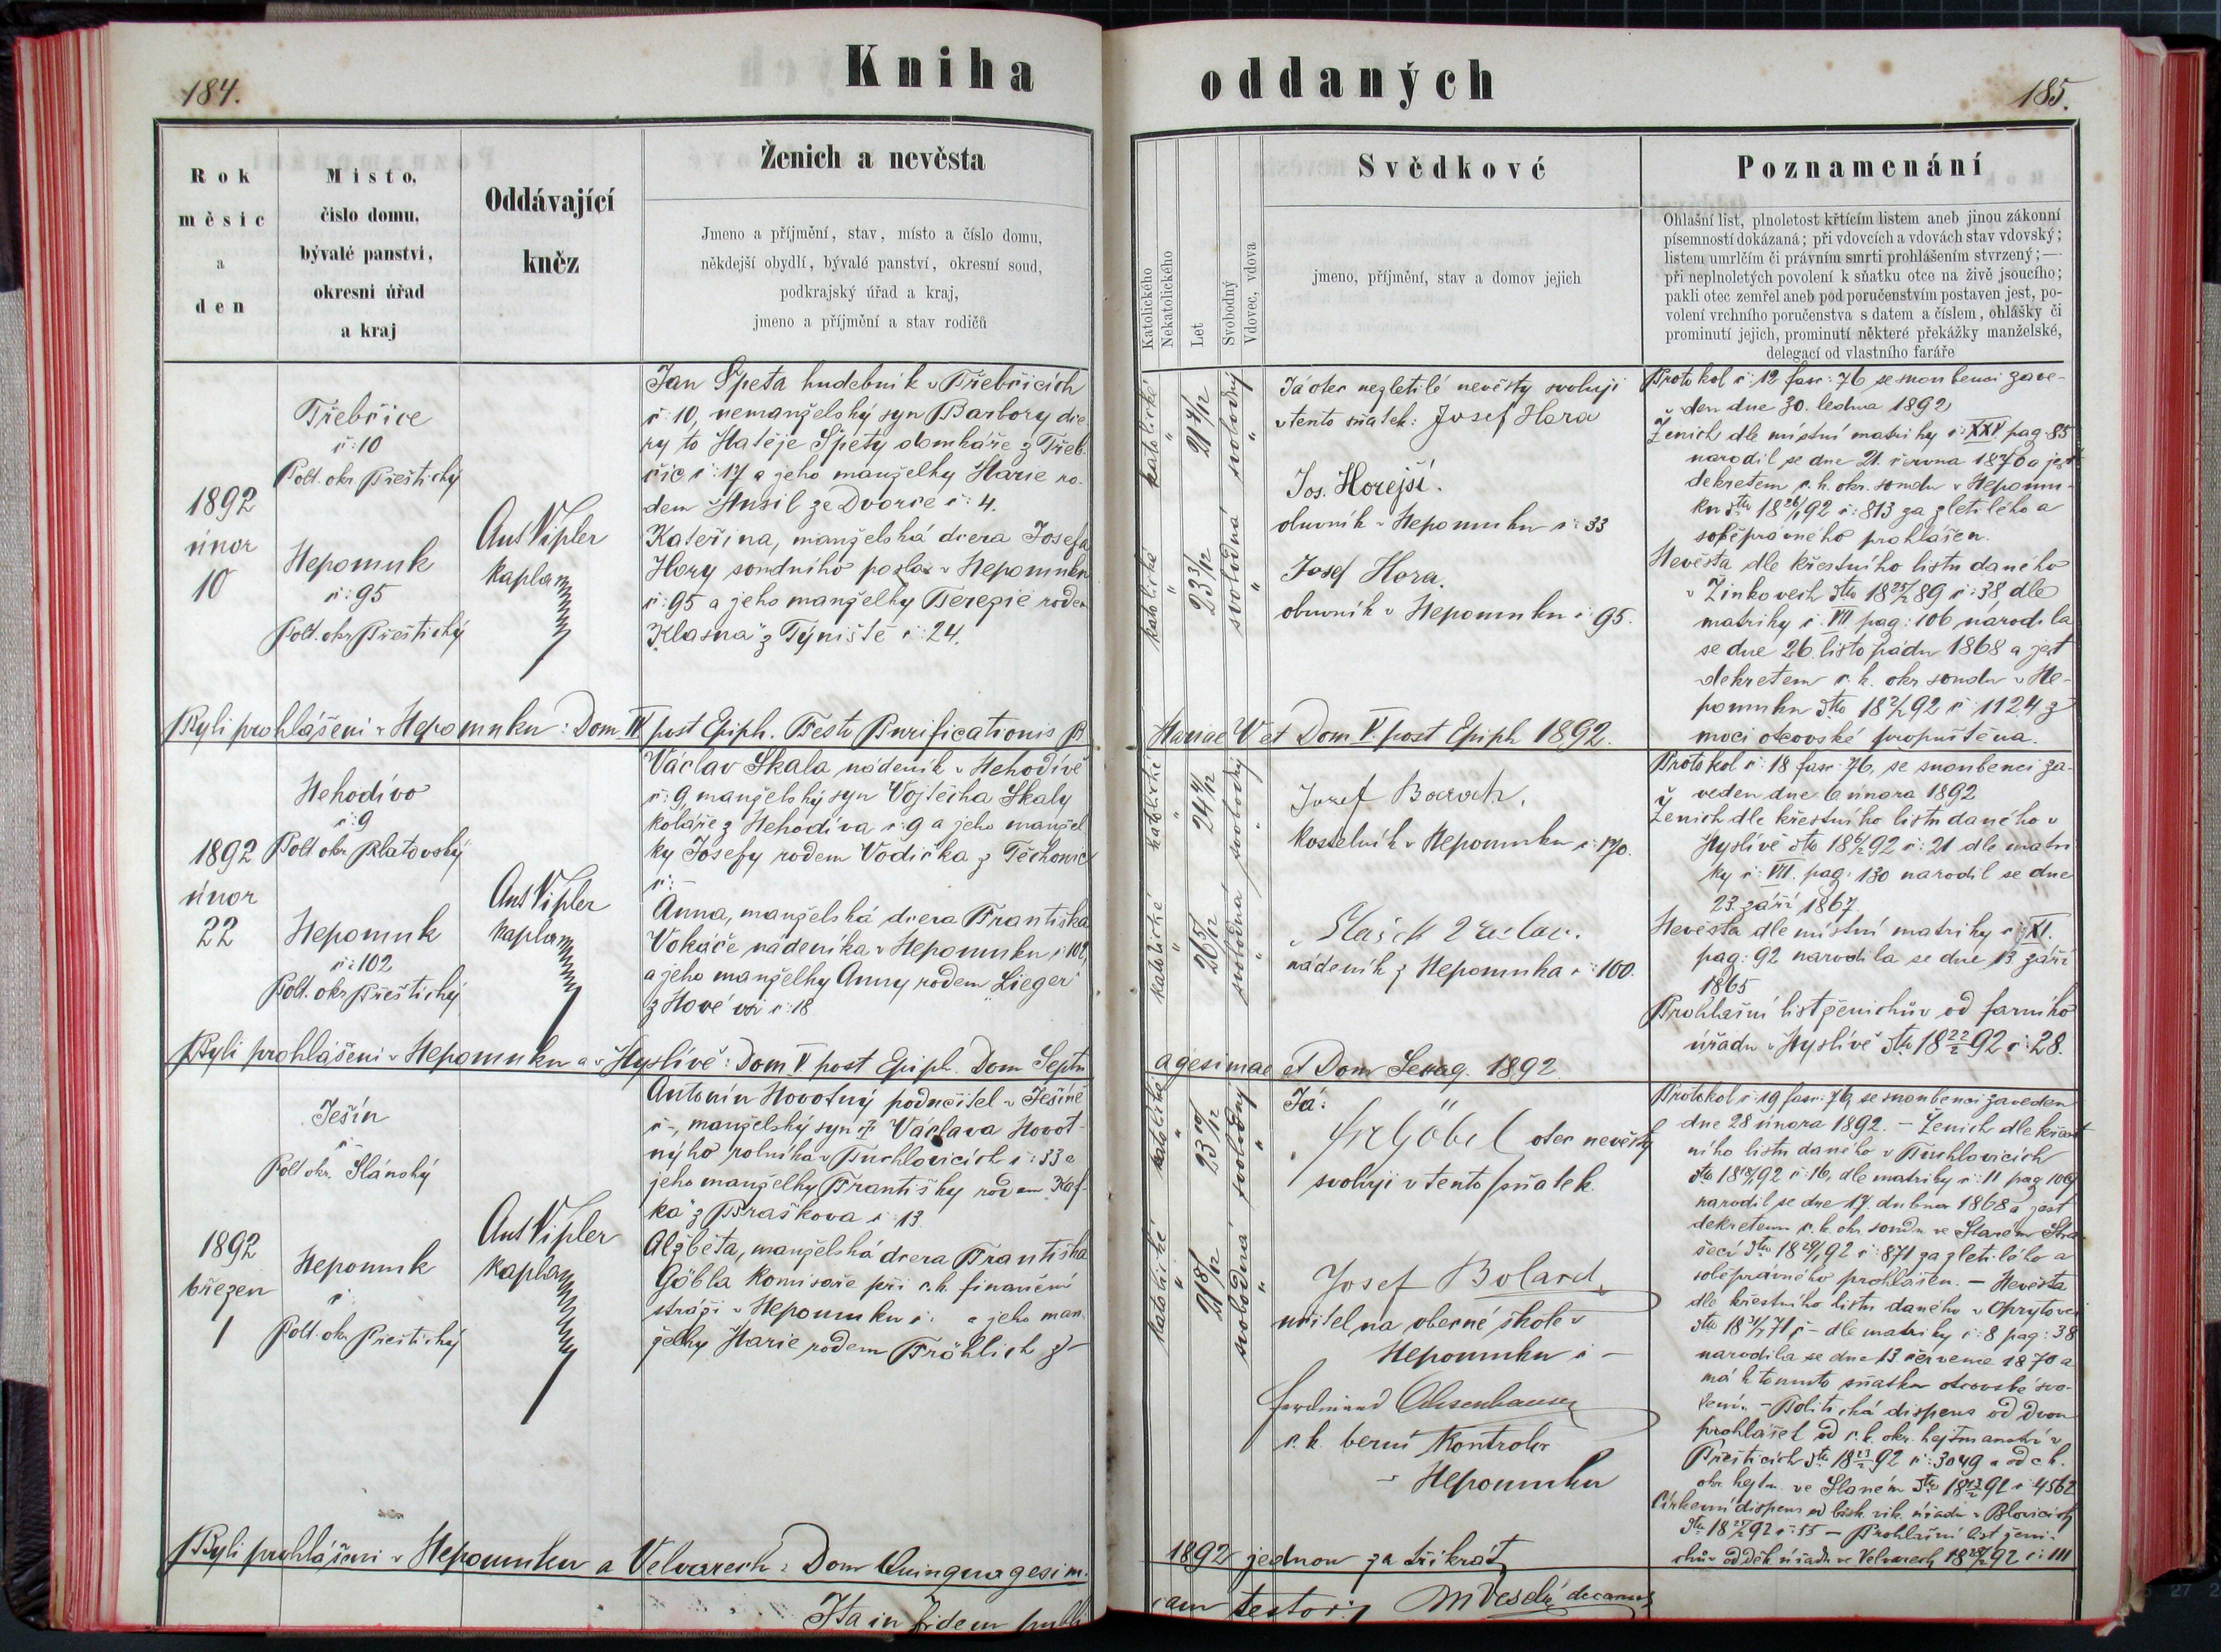 184.
Kniha
Rok
měsíc
a
den
Místo,
číslo domu,
bývalé panství,
okresní úřad
a kraj
Oddávající
kněz
Ženich a nevěsta
Jmeno a příjmění, stav, místo a číslo domu,
někdejší obydlí, bývalé panství, okresní soud,
podkrajský úřad a kraj,
jmeno a příjmění a stav rodičů
1892
únor
10
Třebčice
č: 10
Polit. okr Přeštický
Nepomuk
č: 95
Polit. okr Přeštický
Ant Vipler
kaplan
Jan Špeta hudebník v Třebčicích
č: 10, nemanželský syn Barbory dce-
ry to Matěje Špety domkáře z Třeb-
čic č: 17 a jeho manželky Marie ro-
dem Musil ze Dvorce č: 4.
Kateřina, manželská dcera Josefa
Hory soudního posla v Nepomuku
č: 95 a jeho manželky Terezie rodem
Klasna z Týniště č: 24.
Byli prohlášeni v Nepomuku: Dom IV post Epiph. Festo Purificationis B
1892
únor
22
Nehodivo
č: 9
Polit okr Klatovský
Nepomuk
č: 102
Polit. okr Přeštický
Ant Vipler
kaplan
Václav Skala nádeník v Nehodivě
č: 9, manželský syn Vojtěcha Skaly
koláře z Nehodiva č: 9 a jeho manžel
ky Josefy rodem Vodička z Těchonic
č: -
Anna, manželská dcera Františka
Vokáče nádeníka v Nepomuku č 102,
a jeho manželky Anny rodem Lieger
z Nové vsi č: 18
Byli prohlášeni v Nepomuku a v Myslívě: Dom V post Epiph. Dom Septu
1892
březen
1
Ješín
č -
Polit okr. Slánský
Nepomuk
č:
Polit. okr Přeštický
Ant Vipler
kaplan
Antonín Novotný podučitel v Ješíně
č -, manželský syn Václava Novot-
ného rolníka v Tuchlovicích č: 33 a
jeho manželky Františky rodem Kaf-
ka z Braškova č: 13.
Alžběta, manželská dcera Františka
Göbla komisaře při c. k. finanční
stráži v Nepomuku č: a jeho man-
želky Marie rodem Fröhlich z -
Byli prohlášeni v Nepomuku a Velvarech: Dom Quinquagesim.
Ita in fidem publi
oddaných
185.
Katolického
Nekatolického
Let
Svobodný
Vdovec, vdova
Svědkové
jmeno, příjmění, stav a domov jejich
Poznamenání
Ohlašní list, plnoletost křtícím listem aneb jinou zákonní
písemností dokázaná; při vdovcích a vdovách stav vdovský;
listem umrlčím či právním smrti prohlášením stvrzený; —
při neplnoletých povolení k sňatku otce na živě jsoucího;
pakli otec zemřel aneb pod poručenstvím postaven jest, po-
volení vrchního poručenstva s datem a číslem, ohlášky či
prominutí jejich, prominutí některé překážky manželské,
delegací od vlastního faráře
katolické
svobodný
katolické
23 3/12
svobodná
Já otec nezletilé nevěsty svoluji
v tento sňatek: Josef Hora
Jos. Horejší.
obuvník v Nepomuku č: 33
Josef Hora.
obuvník v Nepomuku č 95.
Protokol č: 12 fasc: 76 se snoubenci zave-
den dne 30. ledna 1892
Ženich dle místní matriky č: XXV pag: 85
narodil se dne 21. června 1870 a jest
dekretem c. k. okr. soudu v Nepomu-
ku 92 č: 813 za zletilého a
soběprávného prohlášen.
Nevěsta dle křestního listu daného
v Žinkovech 89 č: 38 dle
matriky č. VII pag: 106 narodila
se dne 26. listopadu 1868 a jest
dekretem c. k. okr soudu v Ne-
pomuku 92 č: 1124 z
moci otcovské propuštěna.
Mariae V et Dom V. post Epiph 1892.
katolické
svobodný
katolické
26 5/12
svobodná
Josef
kostelník v Nepomuku č: 170.
nádeník z Nepomuka č: 100.
Protokol č: 18 fasc: 76, se snoubenci za-
veden dne 6 února 1892
Ženich dle křestního listu daného v
Myslívě 92 č: 21 dle matri
ky č: VII. pag: 130 narodil se dne
23. září 1867.
Nevěsta dle místní matriky č: XI.
pag: 92 narodila se dne 13 září
1865
Prohlašní list ženichův od farního
úřadu v Myslívě 92 č: 28.
agesimae et Dom Sexag. 1892
katolické
23 10/12
svobodný
katolické
svobodná
Já:
Göbel otec nevěsty
svoluji v tento sňatek.
Josef Bolard
učitel na obecné škole v
Nepomuku č -
Ferdinand
c. k. berní kontrolor
v Nepomuku
Protokol č: 19 fasc: 76, se snoubenci zaveden
dne 28 února 1892. - Ženich dle křest
ního listu daného v Tuchlovicích
92 č: 16, dle matriky č: 11 pag 109
narodil se dne 17. dubna 1868 a jest
dekretem c. k. okr soudu ve Slaném
92 č: 871 za zletilého a
soběprávného prohlášen. - Nevěsta
dle křestního listu daného v
71 č - dle matriky č: 8 pag: 38
narodila se dne 13 července 1870 a
má k tomuto sňatku otcovské svo-
lení. - Politická dispens od dvou
prohlášek od c. k. okr. hejtmanství v
Přešticích 92 č: 3049 a od c. k.
okr hejtm. ve Slaném 92 č 4562
Církevní dispens od bisk. vik. úřadu v Blovicích
92 č: 55 - Prohlašní list ženi-
chův od děk úřadu ve Velvarech 92 č: 111
1892 jednou za třikrát
cam testor: M Veselý decanus